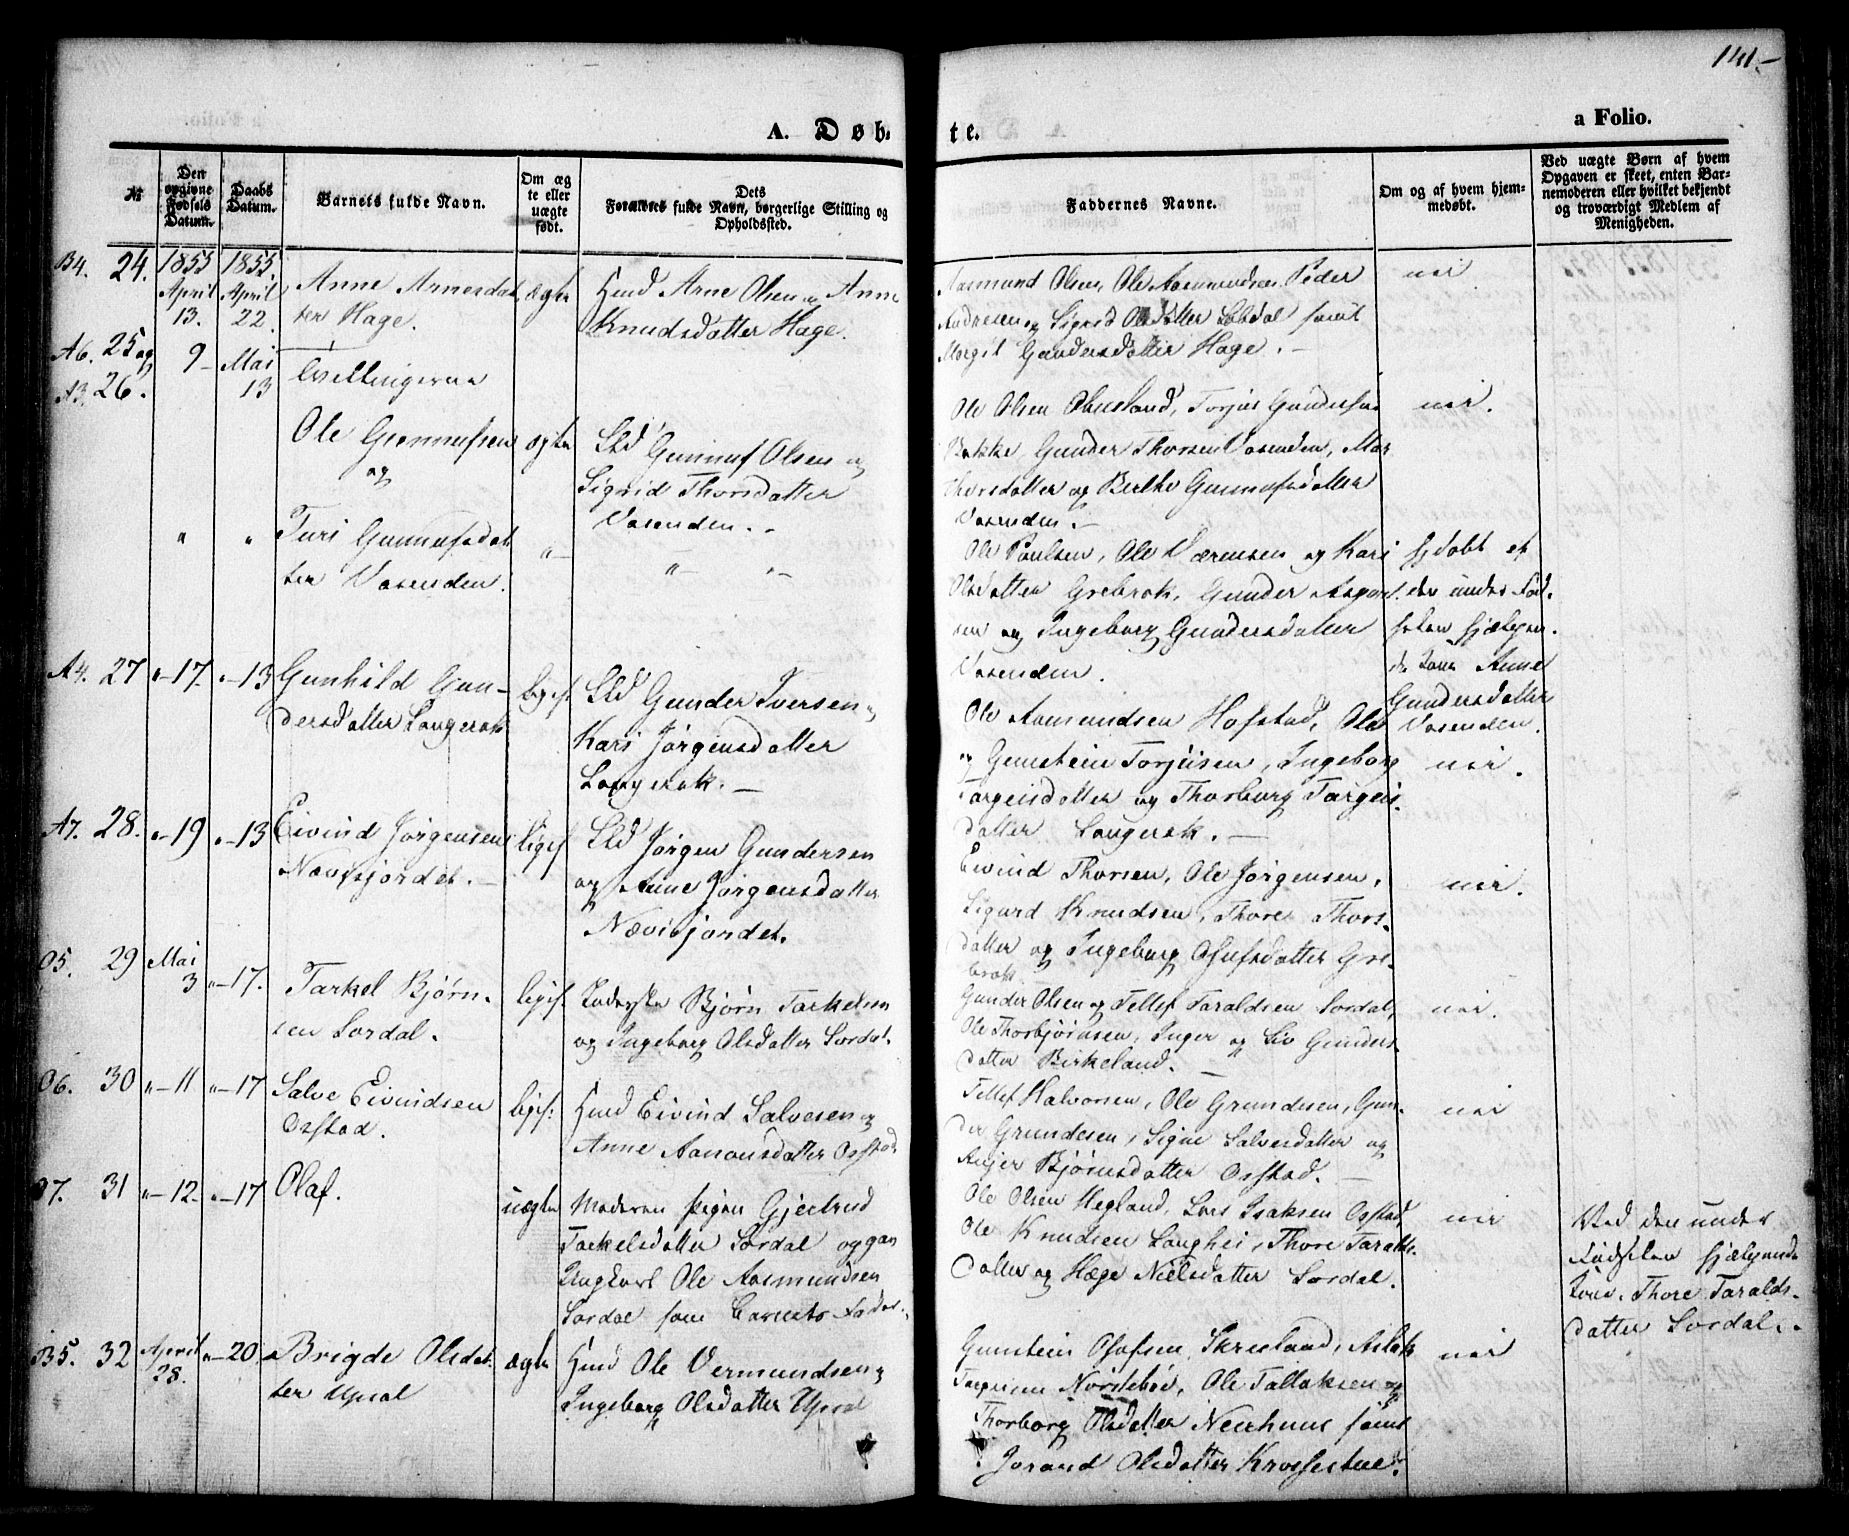 141.-
A. Døb-
te.
a Folio.
№
Den opgivne Fødsels Datum.
Daabs Datum.
Barnets fulde Navn.
Om ægte eller uægte født.
Dets Forældres fulde Navn, borgerlige Stilling og Opholdssted.
Faddernes Navne.
Om og af hvem hjemmedøbt.
Ved uægte Børn af hvem Opgaven er skeet, enten Barnemoderen eller hvilket bekjendt og troværdigt Medlem af Menigheden.
B4. 24. 1855 April 13. 1855. April 22.
Anne Arnesdat
ter Hage.
ægte
Husd Arne Olsen og Anne
Knudsdatter Hage.
Aasmund Olsen, Ole Aasmundsen, Peder
Andresen og Sigrid Olsdatter Lobdal samt
Margit Gundersdatter Hage. -
nei
A6. 25 og A3. 26. 9- Mai 13
Tvillingerne
Ole Gunnufsen
og
ægte
Sld Gunnuf Olsen og
Sigrid Thorsdatter
Vasenden. -
Ole Olsen Aasland, Torjus Gundersen
Bakke, Gunder Thorsen Vasenden, Mar
Thorsdatter og Berthe Gunnufsdatter
Vasenden. -
nei.
" "
Turi Gunnufsdat
ter Vasenden.
"-
"- "-
Ole Poulsen, Ole Værensen og Kari
Olsdatter Grebrok, Gunder Aagard
sen og Ingeborg Gundersdatter
Vasenden.
hjdøbt af
den under Fød-
selen hjælpen-
de Kone Anne
Gundersdatter
Vasenden.
A4. 27 "-17- "-13
Gunhild Gun-
dersdatter Langerak
ligesf.
Sld Gunder Iversen og
Kari Jørgensdatter
Langerak. -
Ole Aamundsen Hofstad, Ole
og Gunstein Torjusen, Ingeborg
Torgeisdatter og Thorborg Torgeis-
datter Langerak. -
nei.
A7. 28. "-19 "-13
Eivind Jørgensen
Nævisjordet. -
ligesf
Sld Jørgen Gundersen
og Anne Jørgensdatter
Nævisjordet.
Eivind Thorsen, Ole Jørgensen,
Sigurd Knudsen, Thore Thors-
datter og Ingeborg Osufsdatter Gre-
brok
nei.
O5. 29 Mai 3 "-17.
Tarkel Bjørn-
sen Sordal.
ligesf.
Bjørn Tarkelsen
og Ingeborg Olsdatter Sordal.
Gunder Olsen og Tellef Taraldsen Sordal,
Ole Thorbjørnsen, Inger og Liv Gunders-
datter Birkeland. -
nei.
O6. 30 "-11 "-17
Salve Eivindsen
Ofstad.
ligesf:
Husd Eivind Salvesen og
Anne Aanonsdatter Ofstad
Tellef Halvorsen, Ole Grundesen, Gun-
der Grundesen, Signe Salvesdatter og
Bjørnsdatter Ofstad. -
nei
O7. 31 "-12- "-17
Olaf.
uægte
Moderen Pigen Gjertrud
Tarkelsdatter Sordal og
Ungkarl Ole Aasmundsen
Sordal som Barnets Fader.
Ole Olsen Hegland, Lars Isaksen Ofstad,
Ole Knudsen Langhei, Thore Taralds-
datter og Hæge Nielsdatter Sordal.
nei
Ved den under
Fødselen hjælpende
Kone, Thore Taralds-
datter Sordal. -
B5. 32 April 28. "-20
Brigde Olsdat-
ter Upsal
ægte
Husd Ole Vermundsen og
Ingeborg Olsdatter Upsal
Gunstein Osufsen Skreeland, Aslak
Nordebø, Ole Tallaksen og
Thorborg Olsdatter Neuhuus samt
Jorand Olsdatter
nei